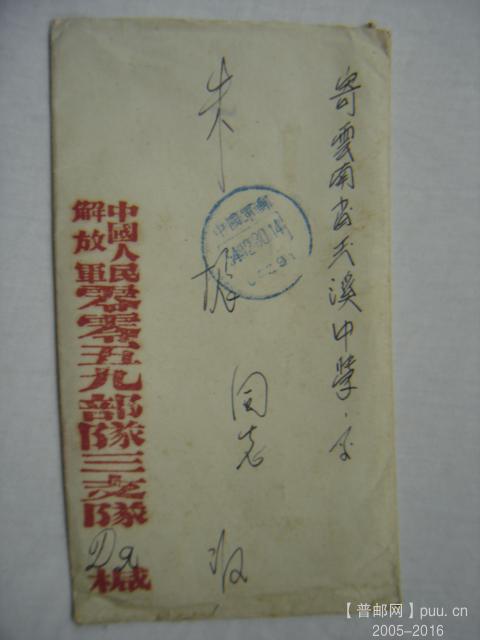 寄雲南省玉溪中學
朱 同志 收
中國軍郵
中國人民
解放軍
零零五九部隊三支隊
緘
【普邮网】puu.cn
2005-2016